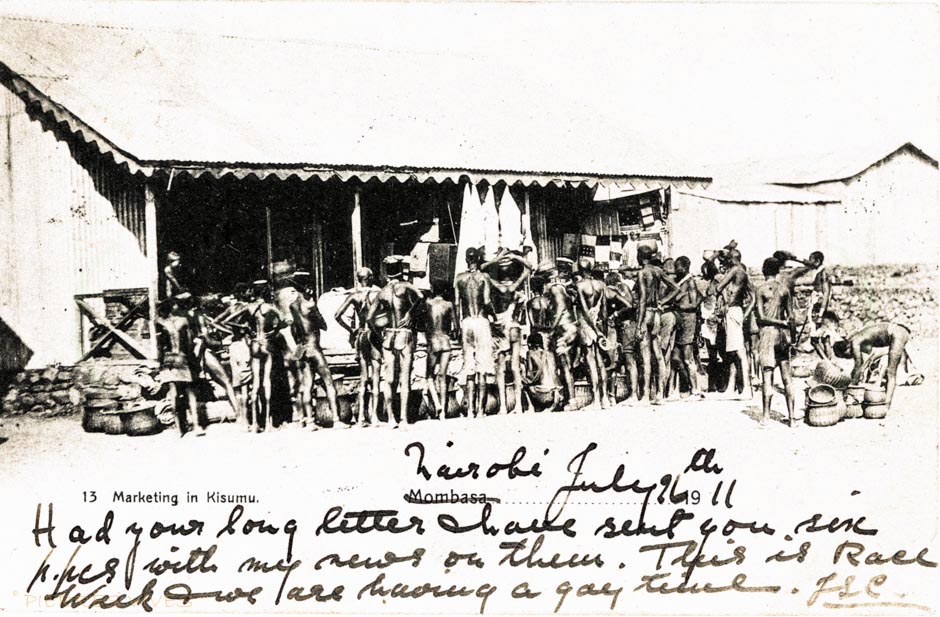 Nairobi July th
13 Marketing in Kisumu. Mombasa 1911
Had your long letter & have sent you six
p.pcs with my news on them. This is Race
Week & we are having a gay time. JSC.